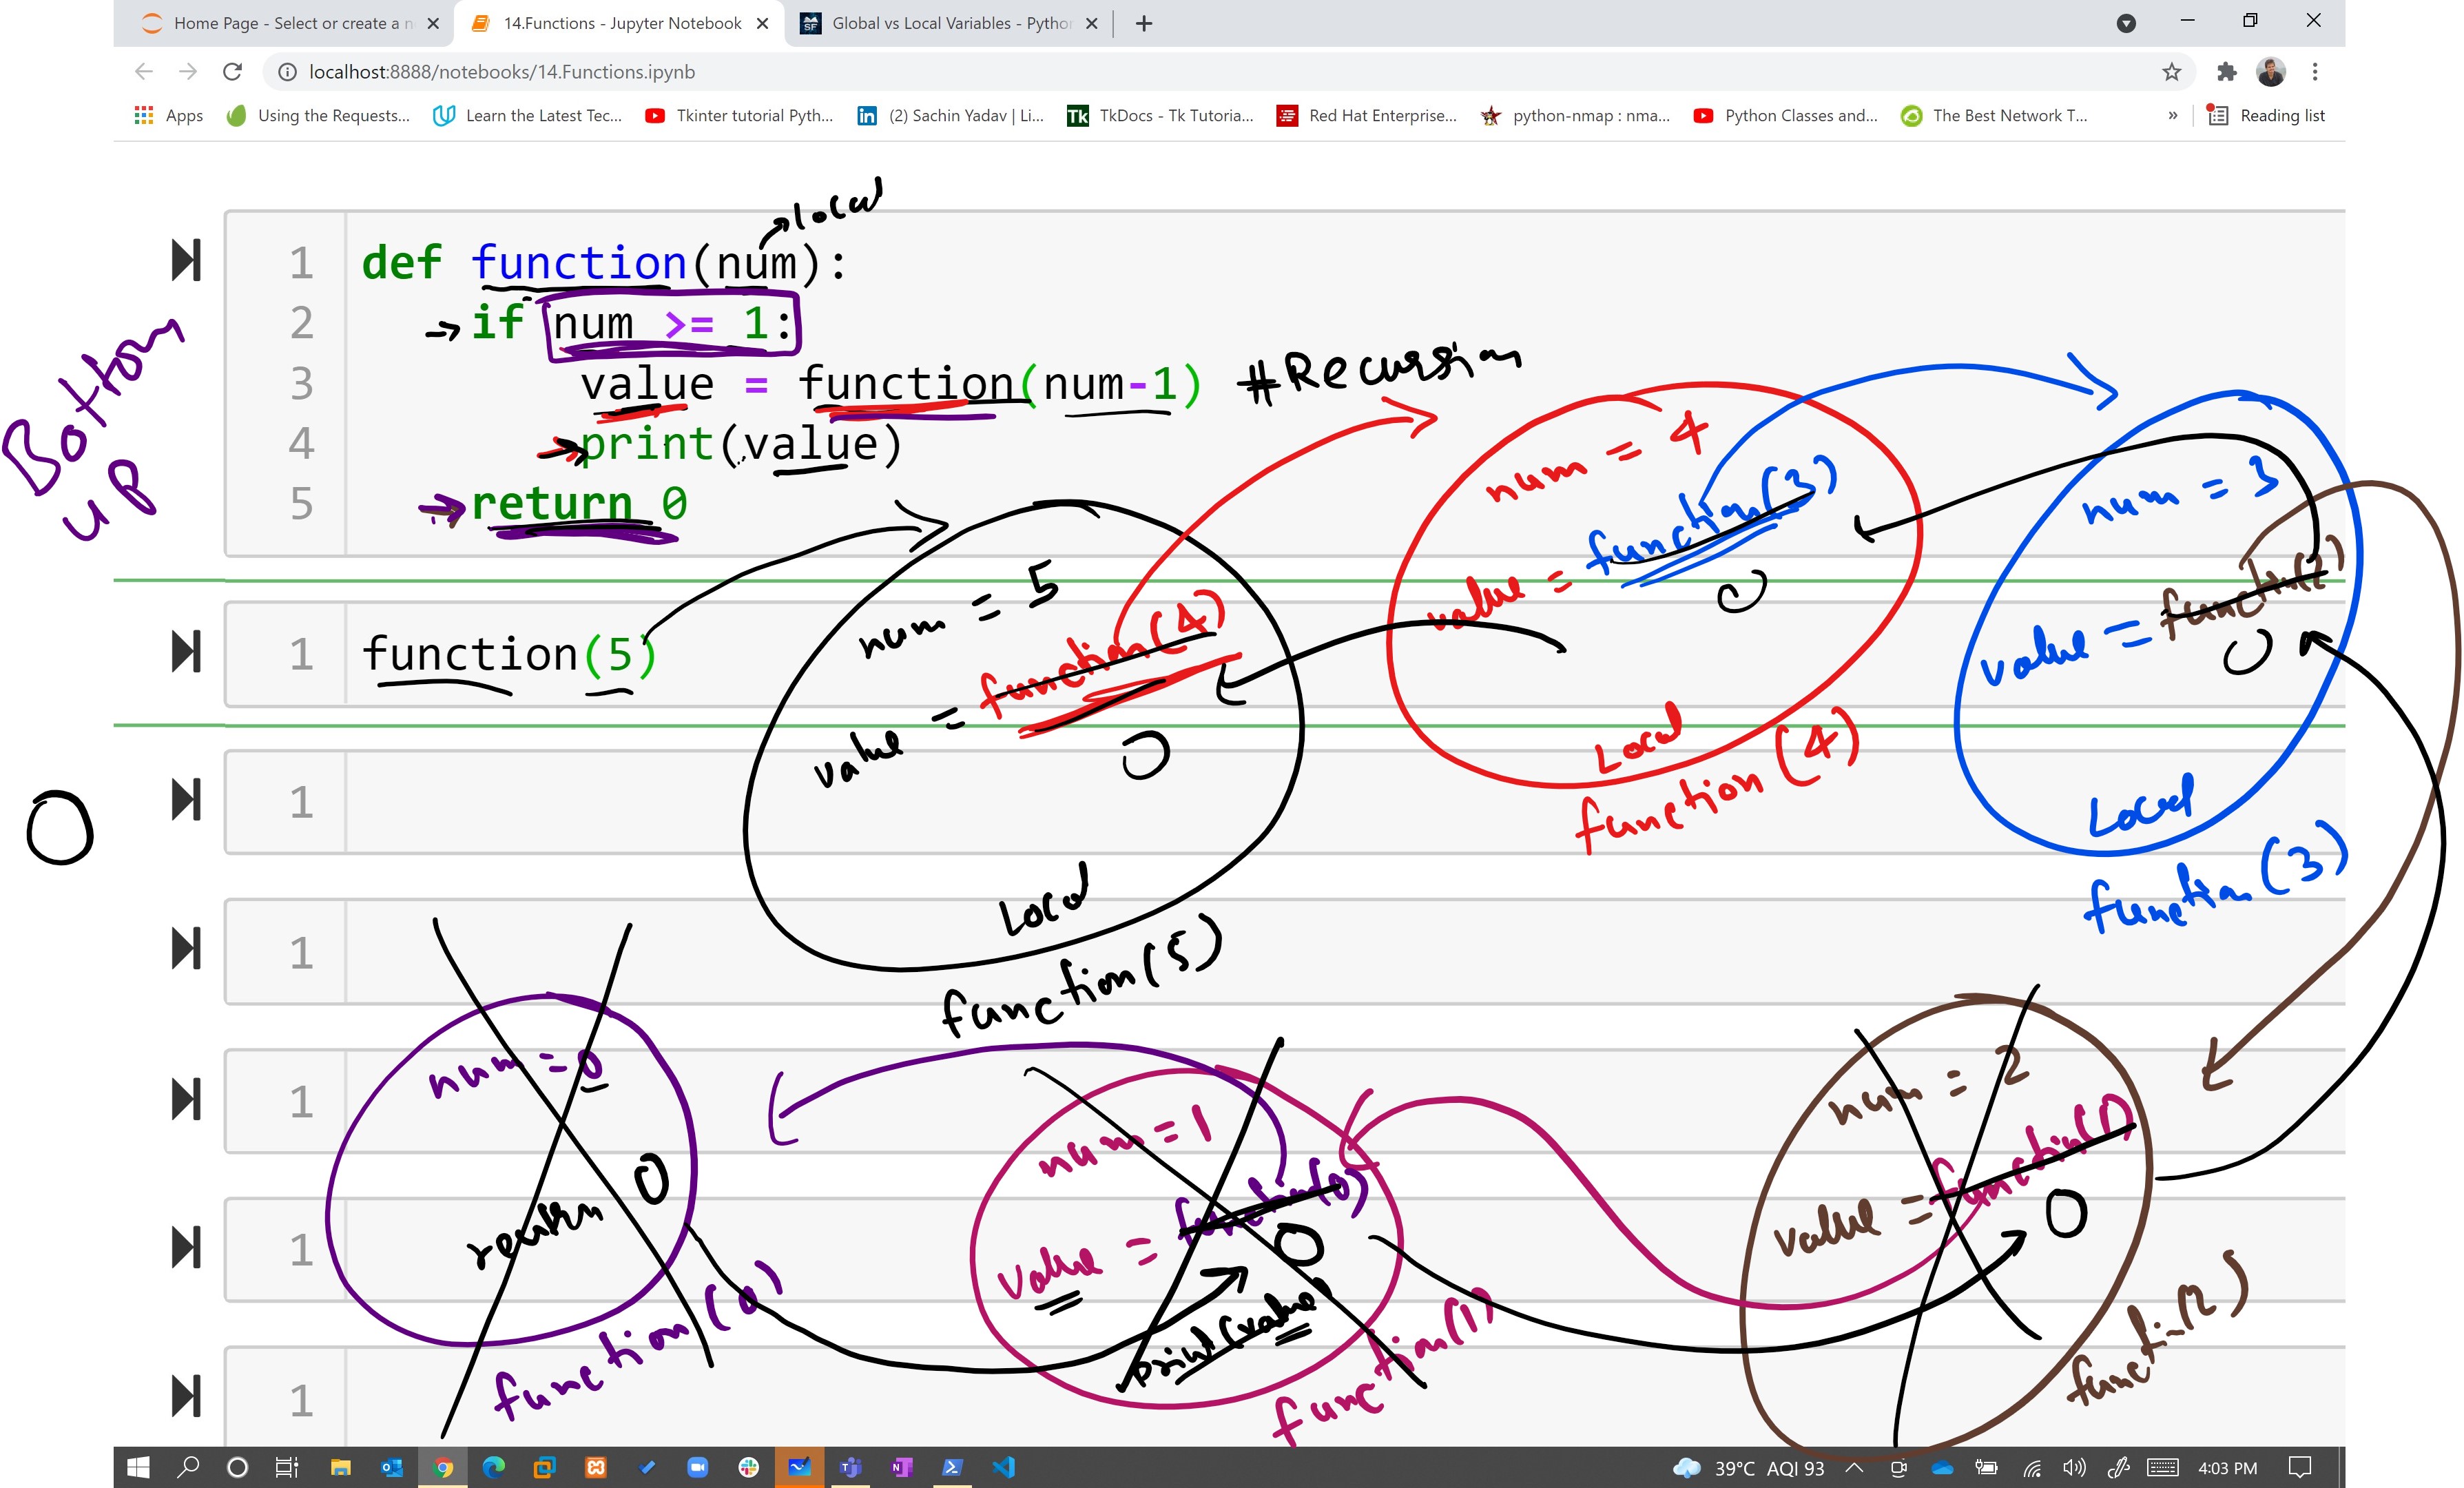 Home Page - Select or create a n
14.Functions - Jupyter Notebook
SF Global vs Local Variables - Pytho
localhost:8888/notebooks/14.Functions.ipynb
Apps Using the Requests... Learn the Latest Tec... Tkinter tutorial Pyth... (2) Sachin Yadav | Li... Tk TkDocs - Tk Tutoria... Red Hat Enterprise... python-nmap : nma... Python Classes and... The Best Network T... » Reading list
local
1 def function(num):
2 if num >= 1:
3 value = function(num-1) #Recursion
4 print(value)
5 return 0
Bottom
UP
1 function(5)
num = 5
value = function(4)
0
Local
function(5)
num = 4
value = function(3)
0
Local
function(4)
num = 3
value = function(2)
0
Local
function(3)
1
0
1
1
1
1
num = 0
return 0
function(0)
num = 1
value = function(0)
0
print(value)
function(1)
num = 2
value = function(1)
0
function(2)
39°C AQI 93 4:03 PM